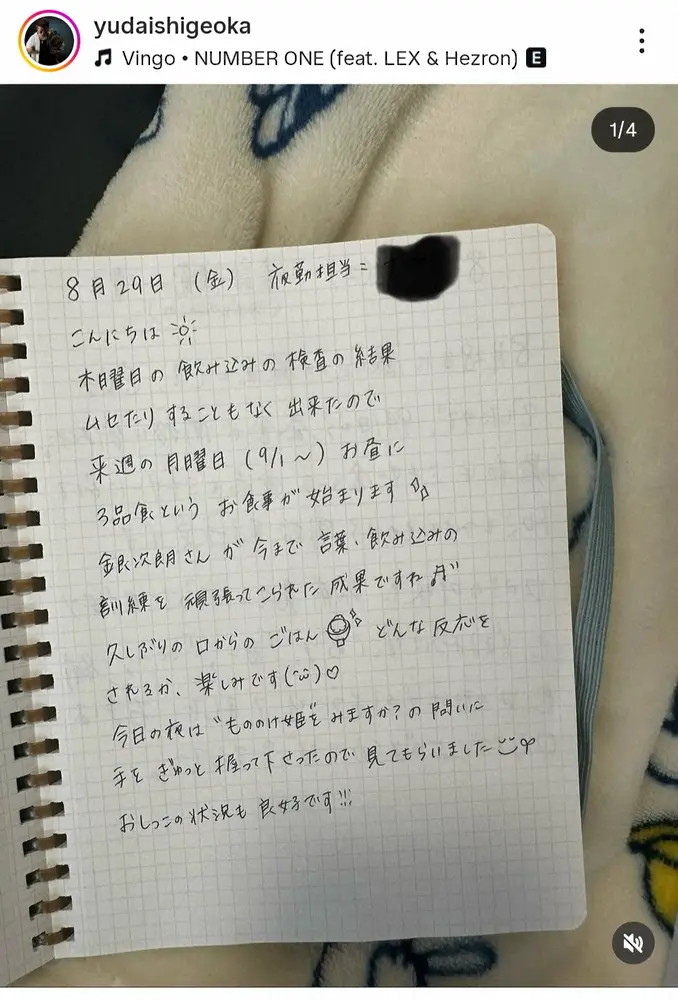 yudaishigeoka
Vingo • NUMBER ONE (feat. LEX & Hezron) E
1/4
8月29日 (金) 夜勤担当=
こんにちは
木曜日の飲み込みの検査の結果
ムセたりすることもなく出来たので
来週の月曜日 (9/1〜) お昼に
3品食という お食事が始まります
銀次朗さんが今まで言葉、飲み込みの
訓練を頑張ってこられた成果ですね
久しぶりの口からのごはん どんな反応を
されるか、楽しみです(^ω^)♡
今日の夜は"もののけ姫"をみますか?の問いに
手をぎゅっと握って下さったので見てもらいました
おしっこの状況も良好です!!!